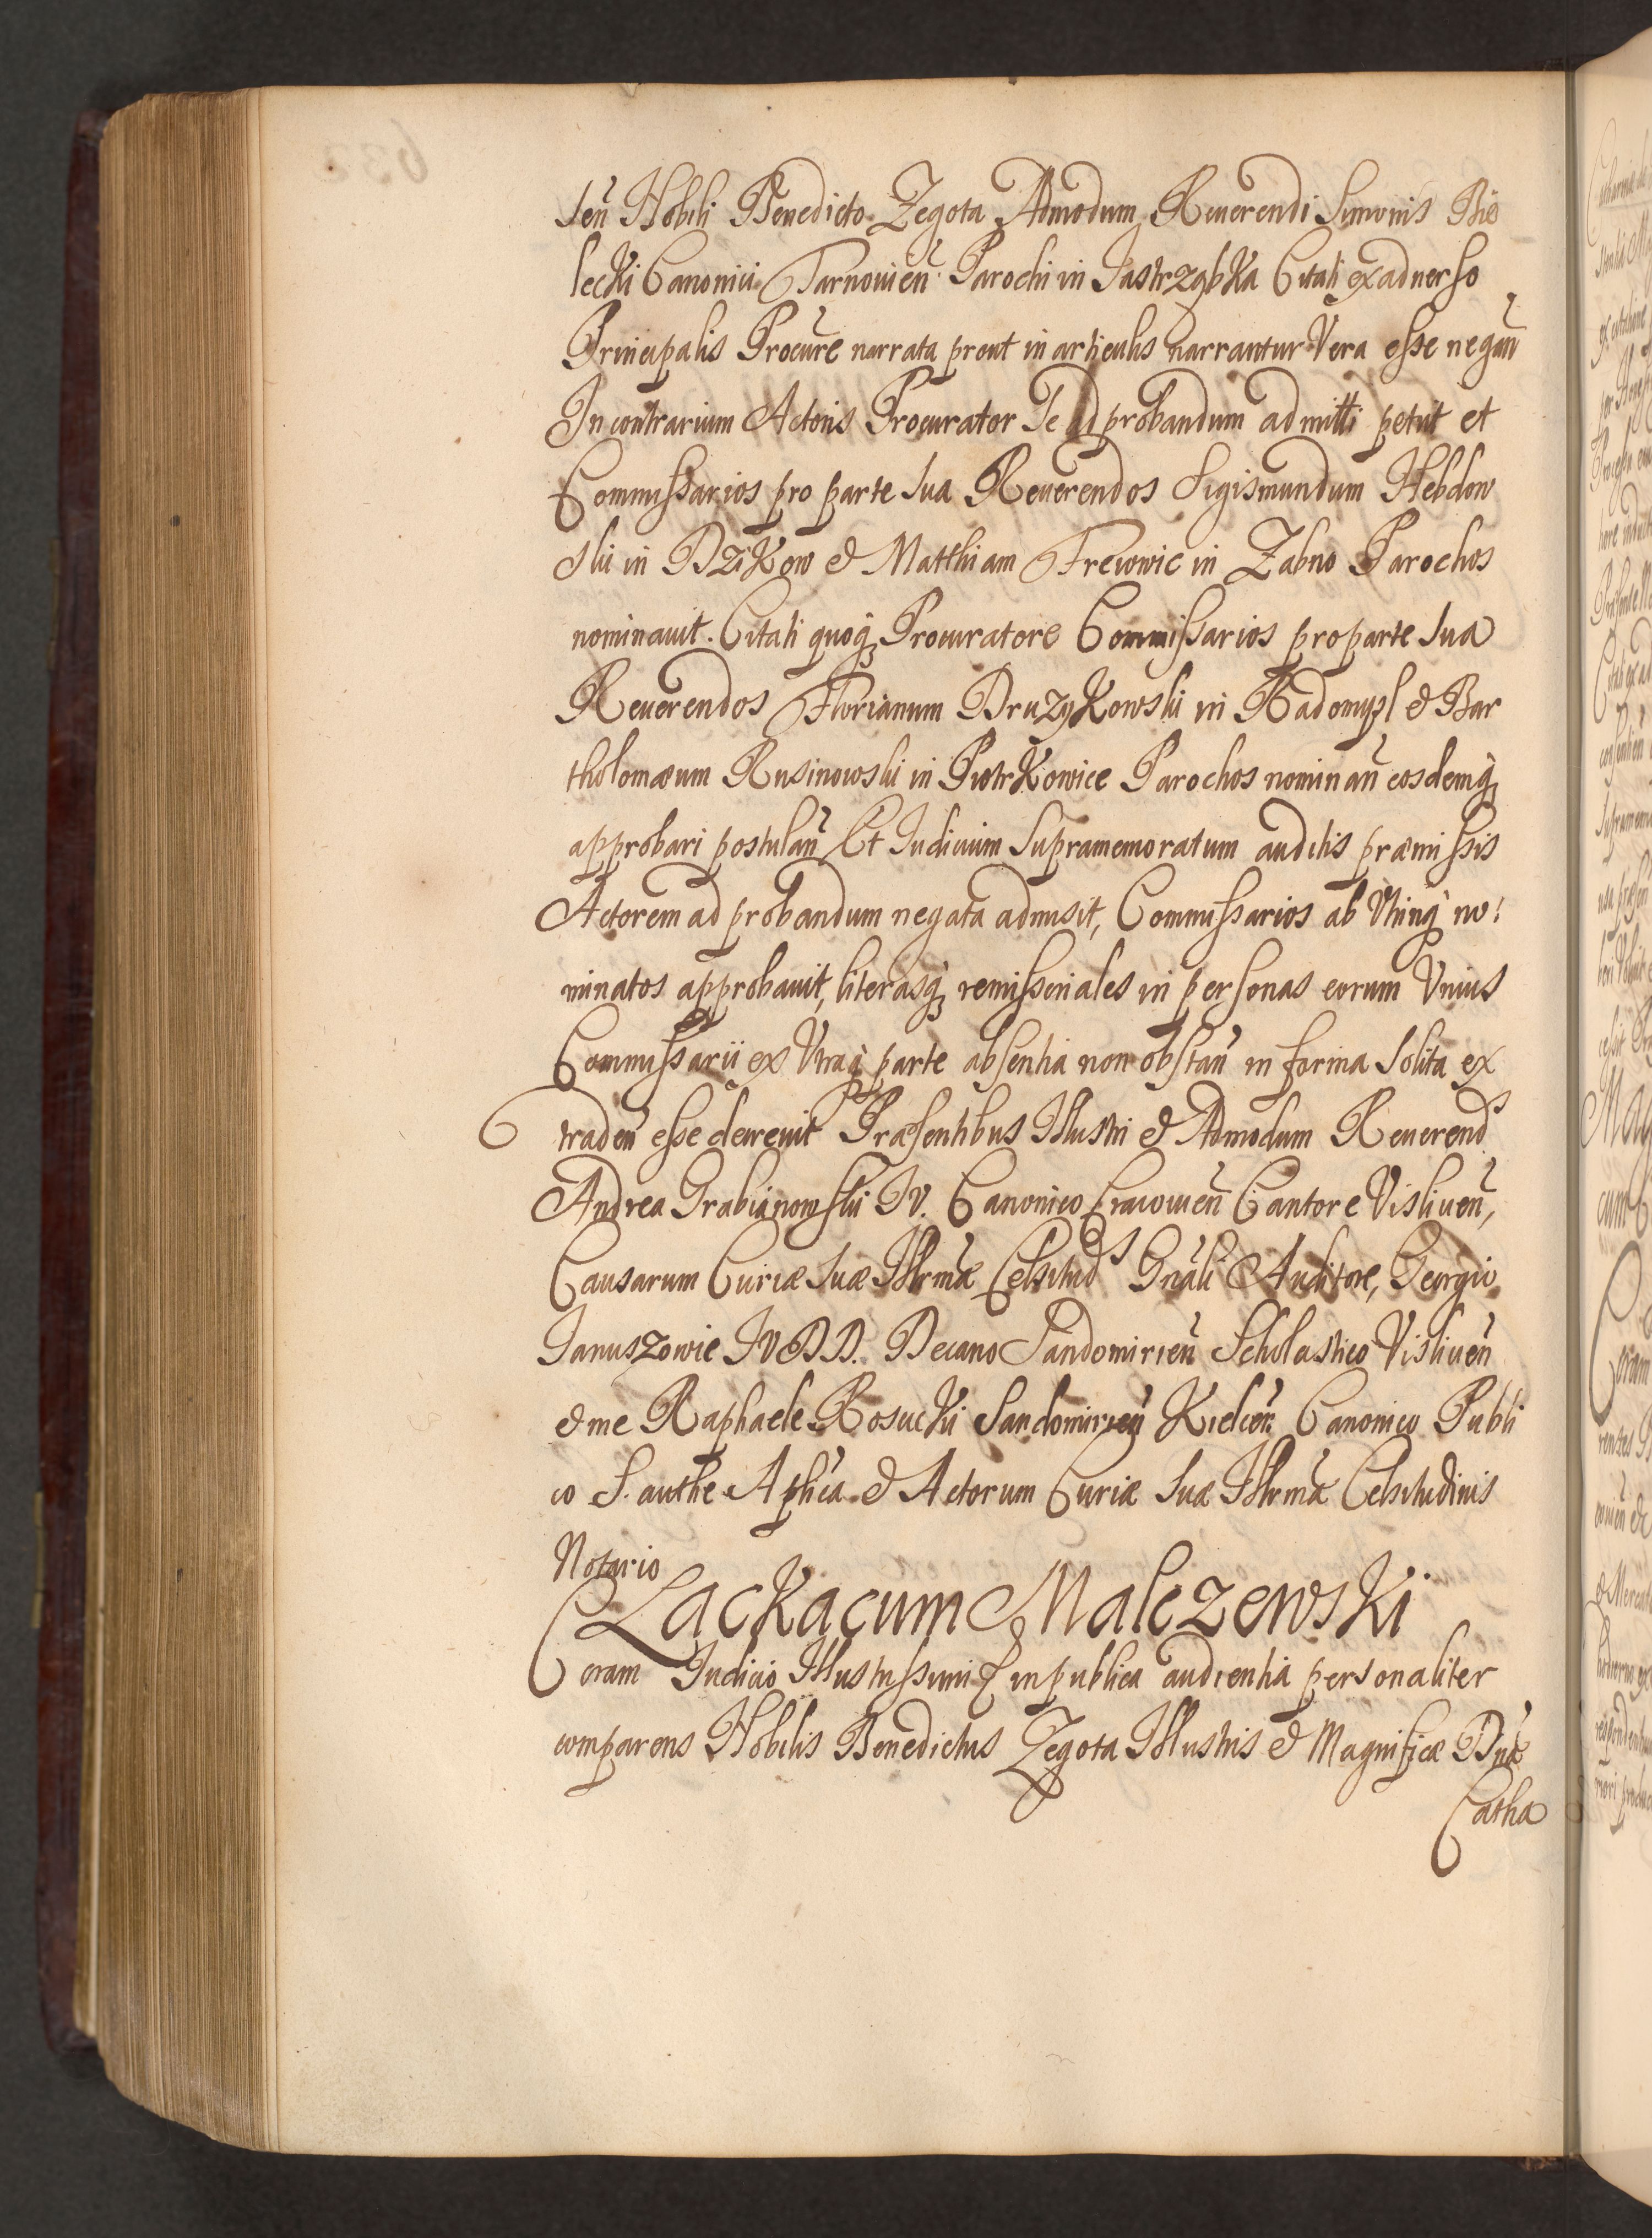 sen̄ Nobili Benedicto Zegota Admodum Reuerendi Simonis Bie
lecki Canonici Tarnouien̄ Parochi in Jastrząbka Citati ex aduerso
Principalis Procūre narrata prout in articulis narrantur Vera esse negan̄
In contrarium Actoris Procurator Se ad probandum admitti petiit et
Commissarios pro parte sua Reuerendos Sigismundum Hebdow
ski in Dzikow & Matthiam Frewowic in Zabno Parochos
nominauit. Citati quoq; Procuratore Commissarios pro parte sua
Reuerendos Florianum Druzykowski in Radomysl & Bar
tholomæum Rusinowski in Piotrkowice Parochos nominan̄ eosdemq;
approbari postulan̄ Et Iudicium supramemoratum auditis præmissis
Actorem ad probandum negata admisit, Commissarios ab Vtrinq; no:
minatos approbauit, literasq; remissoriales in personas eorum Vnius
Commissarii ex Vtraq; parte absentia non obstan̄ in forma solita ex
traden̄ esse decreuit Præsentibus Illustri & Admodum Reuerend̄s
Andrea Grabianowski IV. Canonico Cracouien̄ Cantore Visliuen̄,
Causarum Curiæ suæ Illrmæ Celsitud̄s Gnāli Auditore, Georgio
Januszowic IVDD. Decano Sandomirien̄ Scholastico Visliuen̄
& me Raphaele Rosucki Sandomirien̄ Kielcen̄ Canonico Publi
co S. authe Aplīca & Actorum Curiæ suæ Illrmæ Celsitudinis
Notario
Lackacum Malczewski
Coram Iudicio Illustrissimi & in publica audientia personaliter
comparens Nobilis Benedictus Zegota Illustris & Magnificæ Dn̄æ
Catha